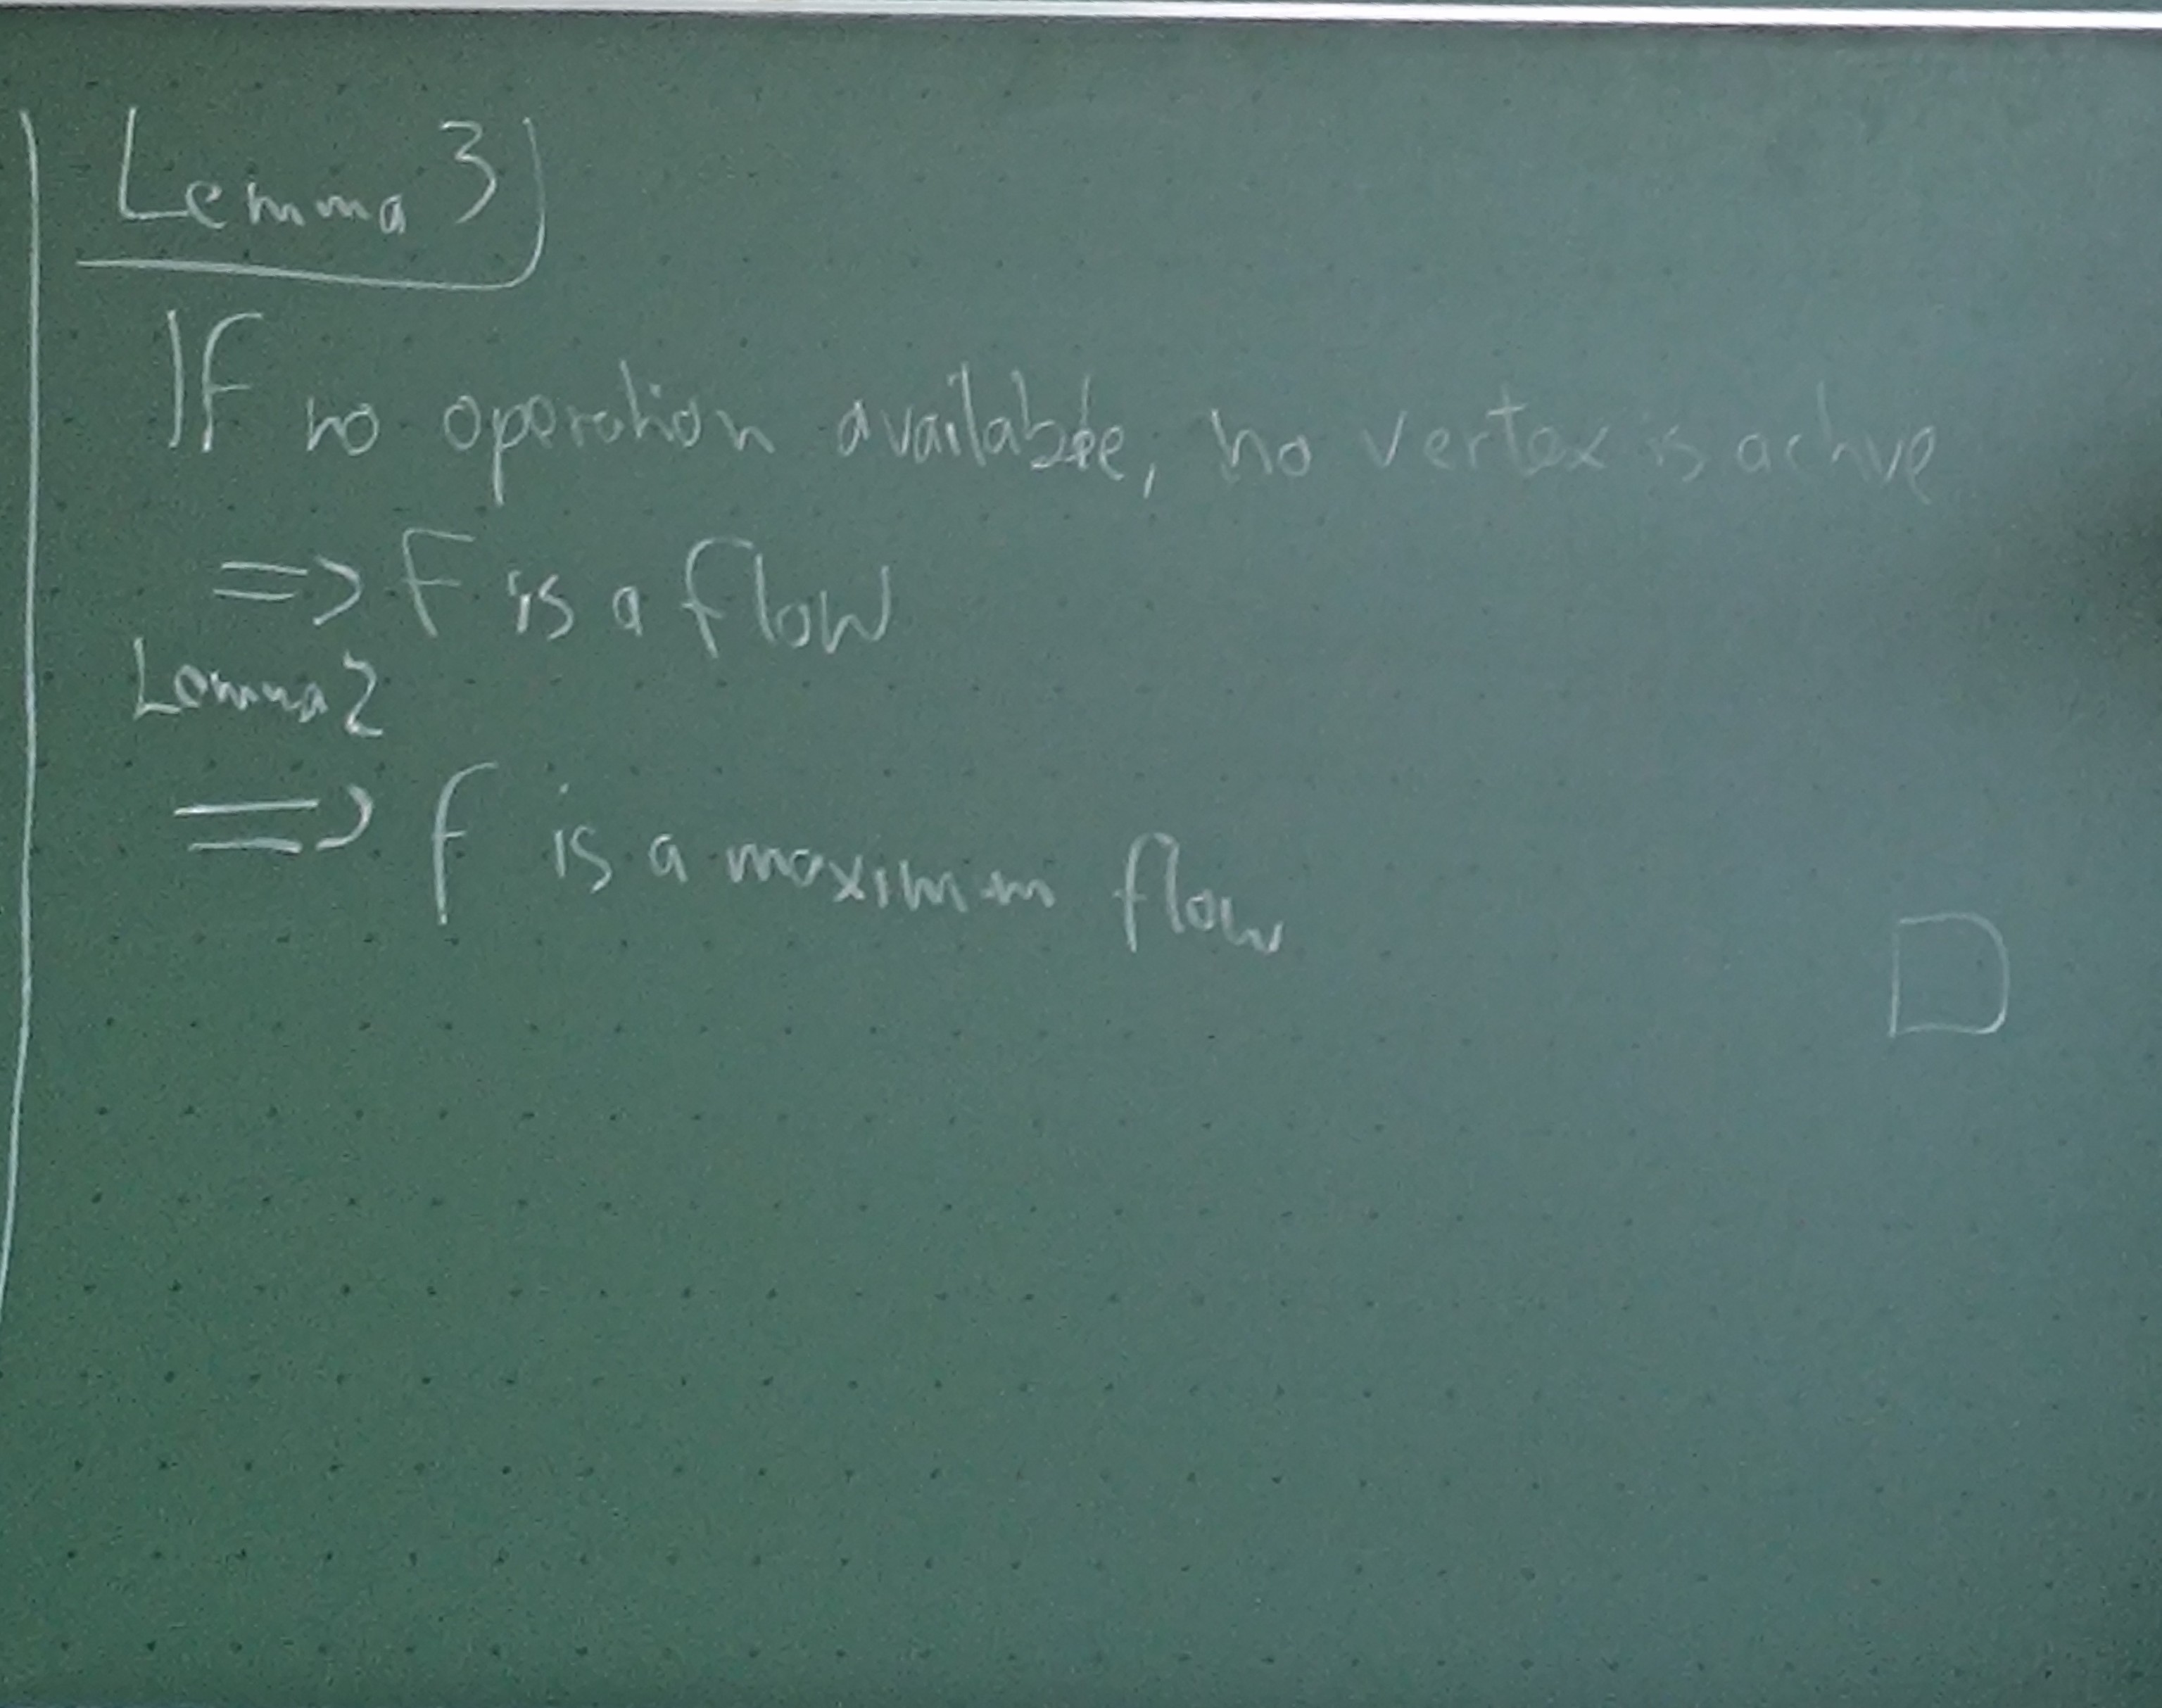 Lemma 3
If no operation available, no vertex is active
=> f is a flow
Lemma 2
=> f is a maximum flow